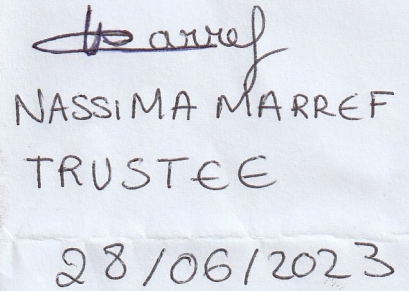 Marref
NASSIMA MARREF
TRUSTEE
28/06/2023